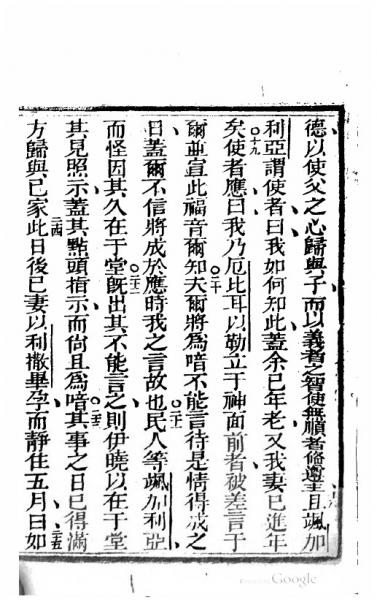 德以使父之心歸與子而以義者之智使無順者脩遵主且颯加
利亞謂使者曰我如何知此蓋余已年老又我妻已進年
十九
矣使者應曰我乃厄比耳以勒立于神面前者被差言于
爾並宣此福音爾知夫爾將為喑不能言待是情得成之
二十
日蓋爾不信將成於應時我之言故也民人等颯加利亞
二一
而怪因其久在于堂既出其不能言之則伊曉以在于堂
二二
其見照示蓋其點頭指示而尚且為喑其事之日已得滿
二三
方歸與己家此日後己妻以利撒畢孕而靜住五月曰如
二四
二五
Google